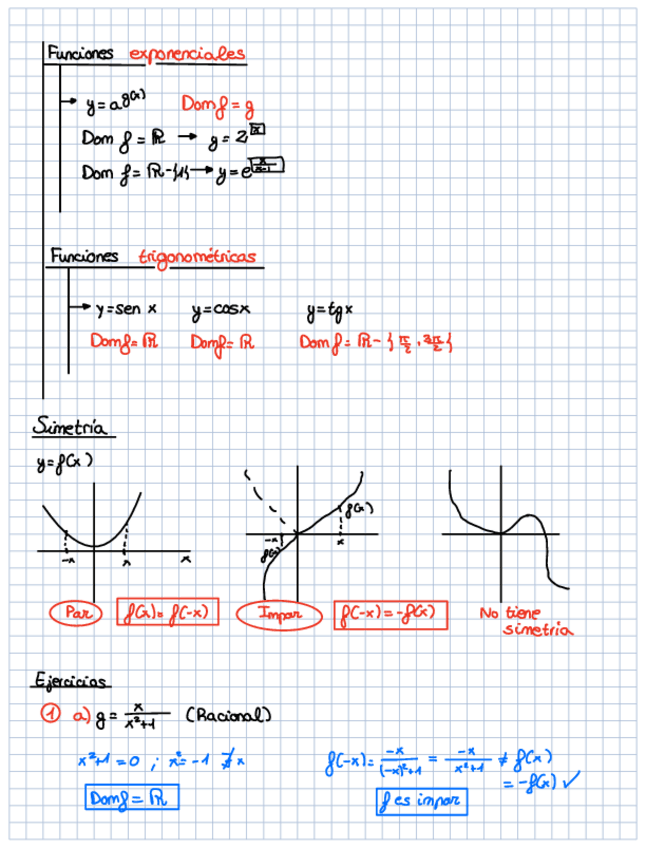 Funciones exponenciales
y = a^g(x) Dom f = g
Dom f = ℝ → y = 2^x
Dom f = ℝ - {1} → y = e^(x/(x-1))
Funciones trigonométricas
y = sen x y = cos x y = tg x
Dom f = ℝ Dom f = ℝ Dom f = ℝ - {π/2, 3π/2}
Simetría
y = f(x)
f(x)
-x x x -x x
f(x)
Par f(x) = f(-x) Impar f(-x) = -f(x) No tiene
simetría
Ejercicios
① a) y = x/(x²+1) (Racional)
x²+1 = 0 ; x² = -1 ∄ x f(-x) = -x/((-x)²+1) = -x/(x²+1) ≠ f(x)
= -f(x) ✓
Dom f = ℝ f es impar